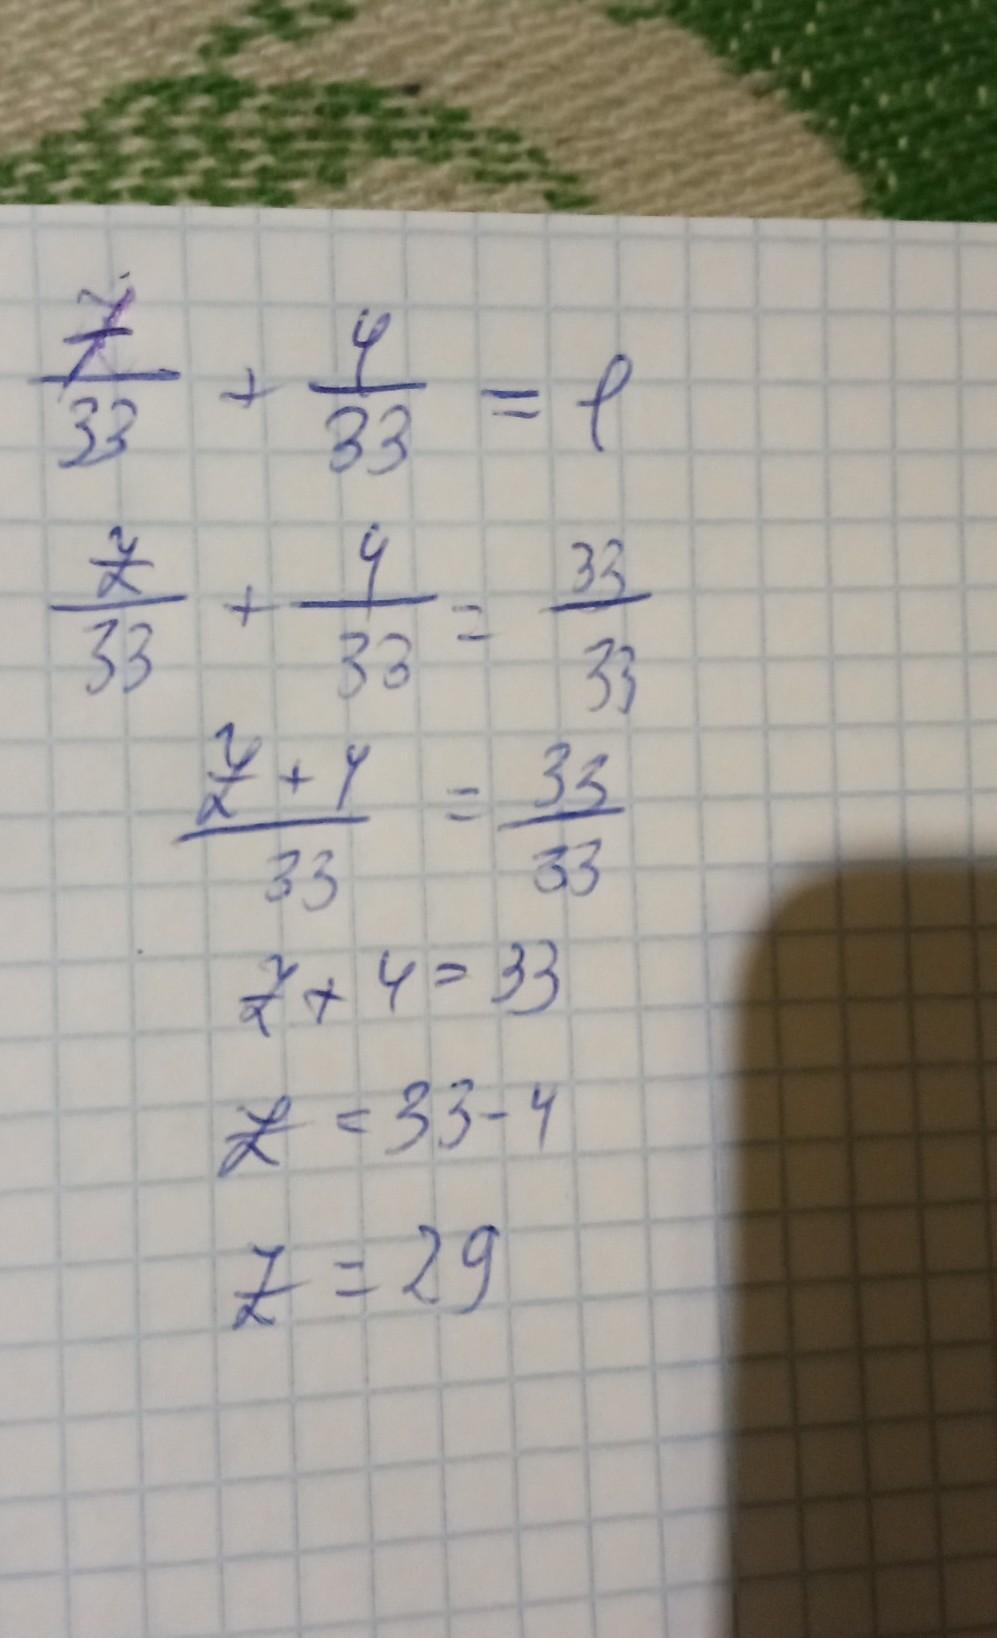 z/33 + 4/33 = 1
z/33 + 4/33 = 33/33
z + 4/33 = 33/33
z + 4 = 33
z = 33 - 4
z = 29